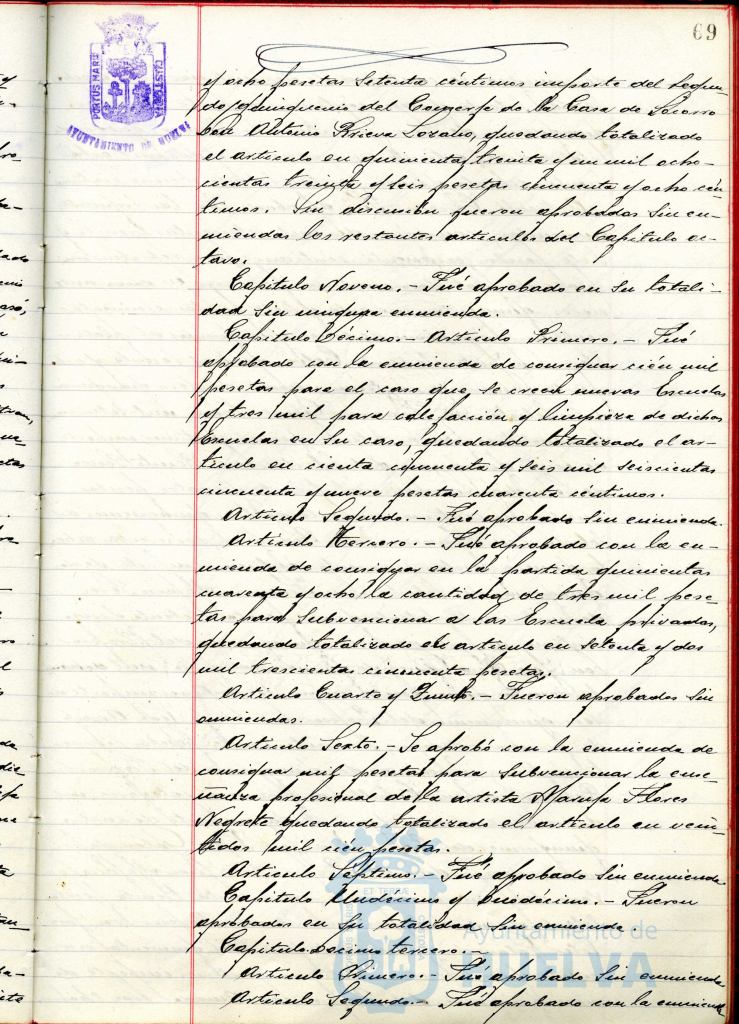 69
PORTUS MARIS
CUSTODIA
AYUNTAMIENTO DE HUELVA
y ocho pesetas setenta céntimos importe del segun-
do quinquenio del Conserje de la Casa de Socorro
Don Antonio Lozano, quedando totalizado
el artículo en quinientas treinta y un mil ocho-
cientas treinta y seis pesetas cincuenta y ocho cén-
timos. Sin discusión fueron aprobados sin en-
miendas los restantes artículos del Capítulo oc-
tavo.
Capítulo Noveno.- Fué aprobado en su totali-
dad sin ninguna enmienda.
Capítulo Décimo.- Artículo Primero.- Fué
aprobado con la enmienda de consignar cién mil
pesetas para el caso que se creen nuevas Escuelas
y tres mil para calefacción y limpieza de dichas
Escuelas en su caso, quedando totalizado el ar-
tículo en cienta cincuenta y seis mil seiscientas
cincuenta y nueve pesetas cuarenta céntimos.
Artículo Segundo.- Fué aprobado sin enmienda.
Artículo Tercero.- Fué aprobado con la en-
mienda de consignar en la partida quinientas
cuarenta y ocho la cantidad de tres mil pese-
tas para subvencionar a las Escuela privadas,
quedando totalizado el artículo en setenta y dos
mil trescientas cincuenta pesetas.
Artículo Cuarto y Quinto.- Fueron aprobados sin
enmiendas.
Artículo Sexto.- Se aprobó con la enmienda de
consignar mil pesetas para subvencionar la ense-
ñanza profesional de la artista Flores
Negrete quedando totalizado el artículo en vein-
tidos mil cién pesetas.
Artículo Séptimo.- Fué aprobado sin enmienda
Capítulo Undécimo y Duodécimo.- Fueron
aprobados en su totalidad sin enmienda.
Capítulo Decimo tercero.-
Artículo Primero.- Fué aprobado sin enmienda
Artículo Segundo.- Fué aprobado con la enmienda
Ayuntamiento de
HUELVA